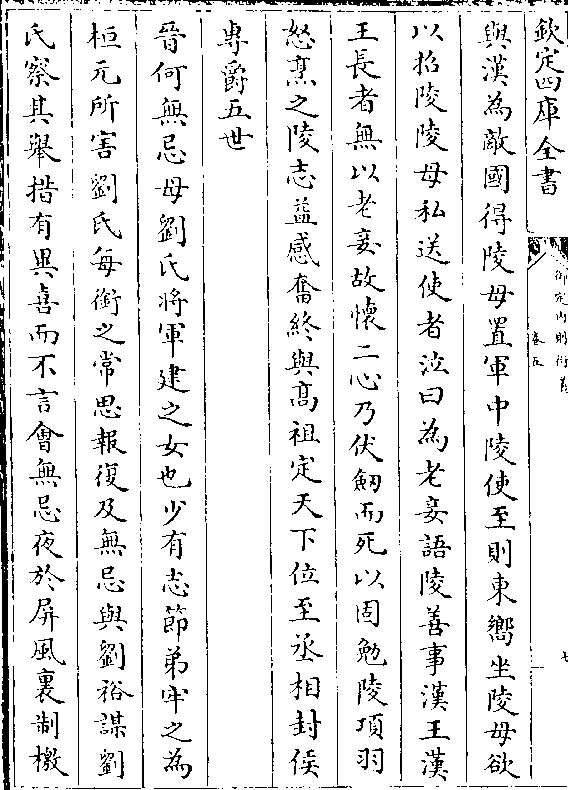 欽定四庫全書
御定內則衍義
卷五
七
與漢為敵國得陵母置軍中陵使至則東嚮坐陵母欲
以招陵陵母私送使者泣曰為老妾語陵善事漢王漢
王長者無以老妾故懷二心乃伏劒而死以固勉陵項羽
怒烹之陵志益感奮終與高祖定天下位至丞相封侯
專爵五世
晉何無忌母劉氏將軍建之女也少有志節弟牢之為
桓元所害劉氏每銜之常思報復及無忌與劉裕謀劉
氏察其舉措有異喜而不言會無忌夜於屏風裏制檄